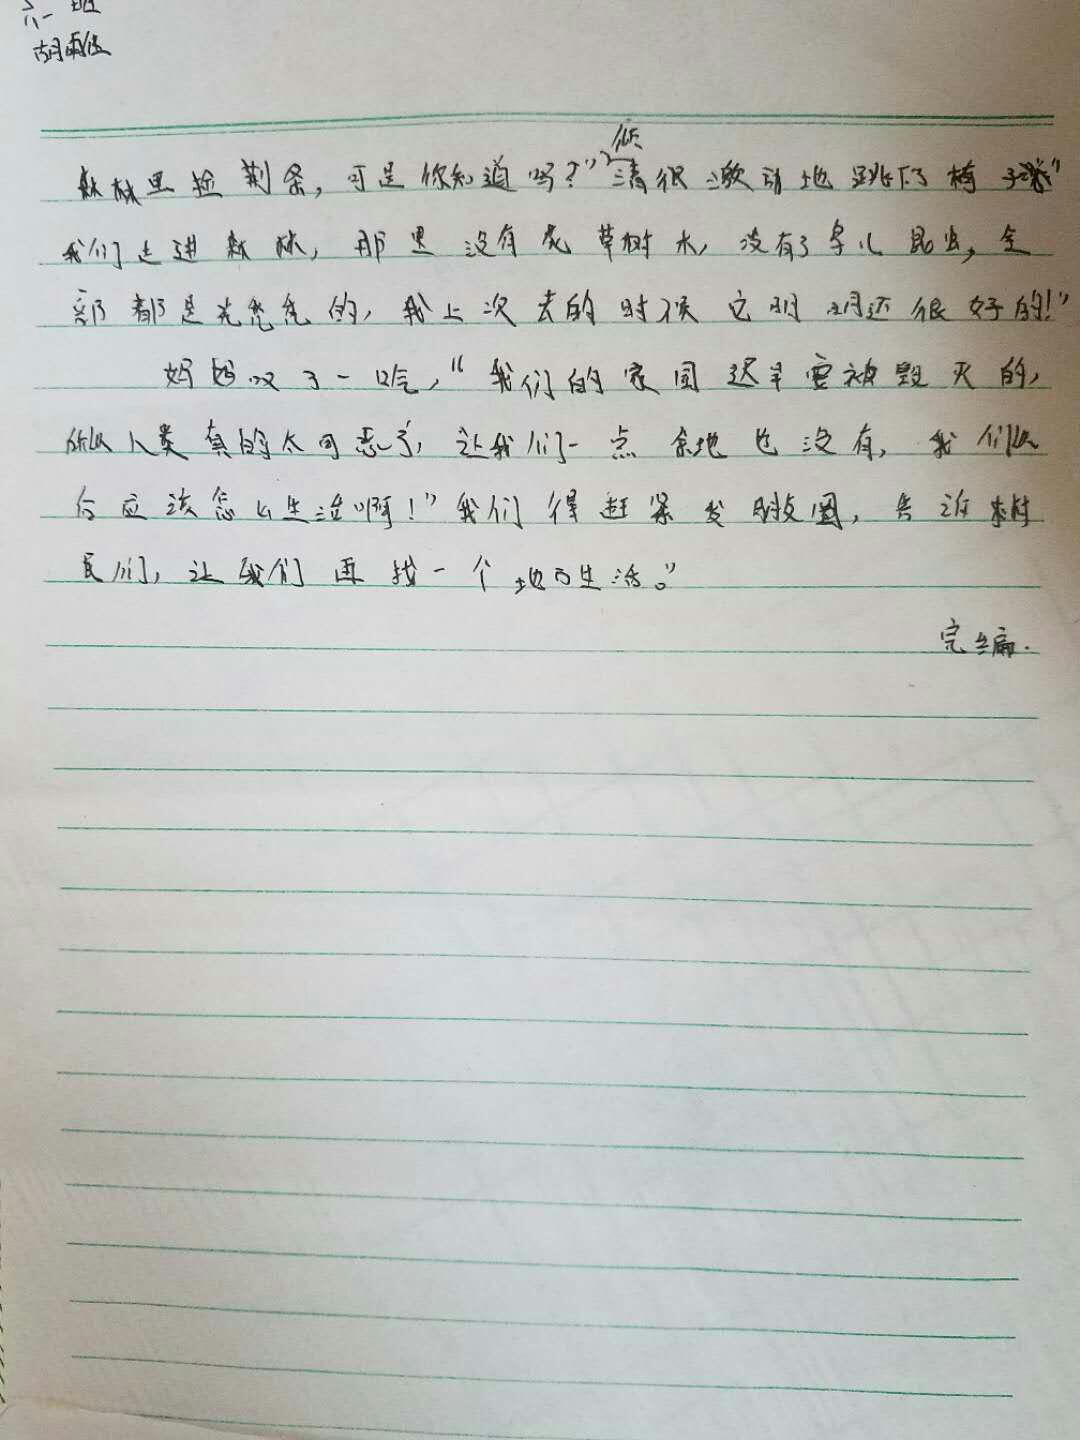 六一班
胡雨
森林里捡荆条，可是你知道吗？”清很激动地跳下了椅子“
我们走进森林，那里没有花草树木，没有了鸟儿昆虫，全
部都是光秃秃的，我上次去的时候它明明还很好的！”
妈妈叹了一口气，“我们的家园迟早要被毁灭的，
所以人类真的太可恶了，让我们一点余地也没有，我们以
后应该怎么生活啊！”我们得赶紧发，告诉村
民们，让我们再找一个地方生活。”
完